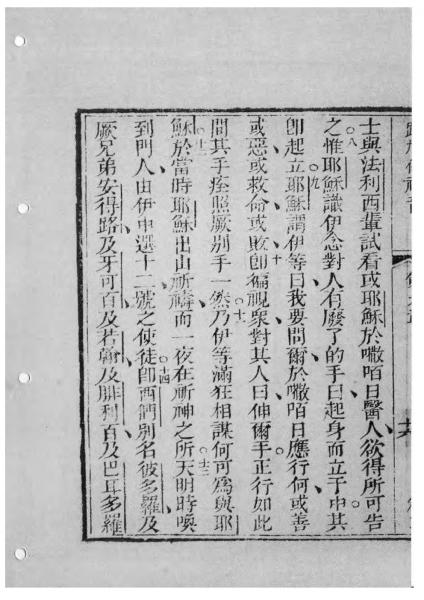 士與法利西輩試看或耶穌於嗽咟日醫人欲得所可告
之○八惟耶穌識伊念對人有廢了的手曰起身而立于中其
即起立○九耶穌謂伊等曰我要問爾於嗽咟日應行何或善
或惡或救命或敗○十即偏視衆對其人曰伸爾手正行如此
間其手痊照厥別手一然○十一乃伊等滿狂相謀何可爲與耶
穌○十二於當時耶穌出山祈禱而一夜在祈神之所○十三天明時喚
到門人由伊中選十二號之使徒○十四即西們別名彼多羅及
厥兄弟安得路及牙可百及若翰及腓利百及巴耳多羅